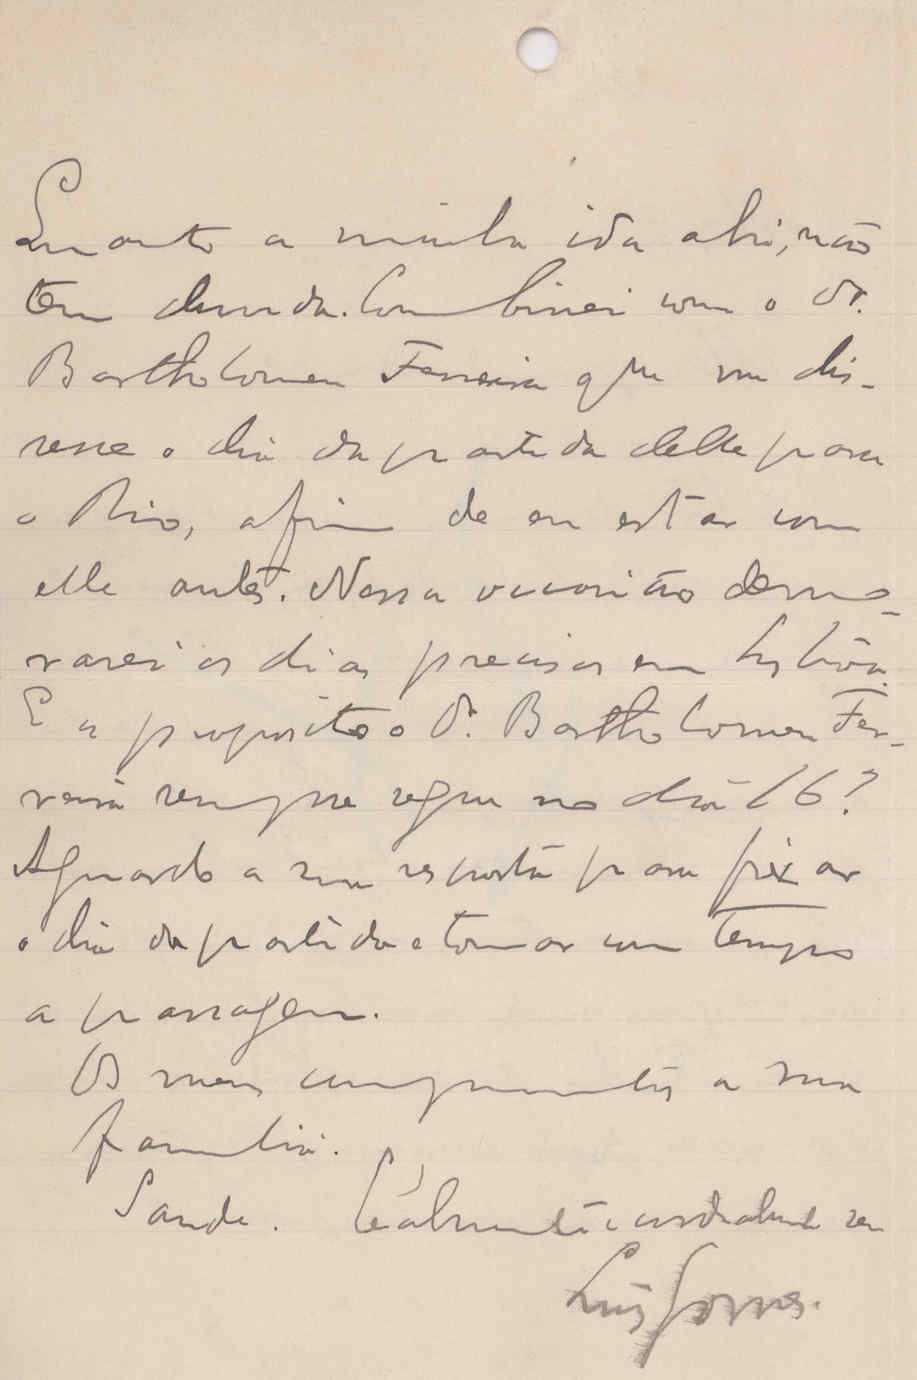 Quanto a minha ida ahi, não
tem duvida. Combinei com o Dr.
Bartholomeu Ferreira que me dis-
sesse o dia da partida delle para
o Rio, afim de eu estar com
elle antes. Nessa occasião demo-
rarei os dias precisos em Lisbôa.
E a proposito o Dr. Bartholomeu Fer-
reira sempre segue no dia 16?
Aguardo a sua resposta para fixar
o dia da partida e tomar com tempo
a passagem.
Os meus cumprimentos a sua
familia.
Saude. Lealmente e cordealmente seu
Luis Gomes.